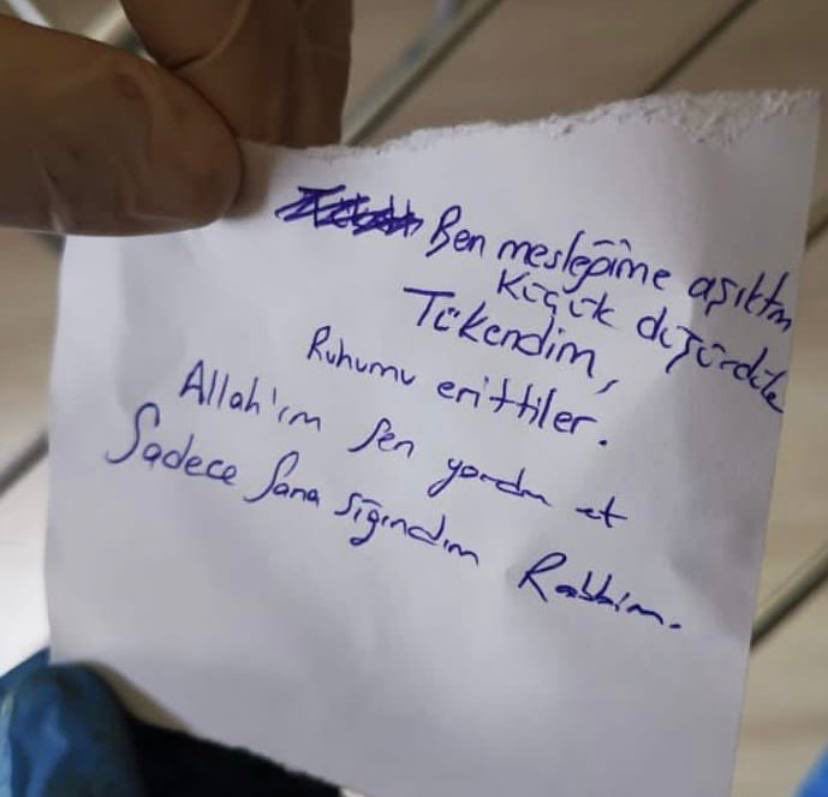 Ben mesleğime aşıktım
Küçük düşürdüler
Tükendim,
Ruhumu erittiler.
Allah'ım Sen yardım et
Sadece Sana sığındım Rabbim.